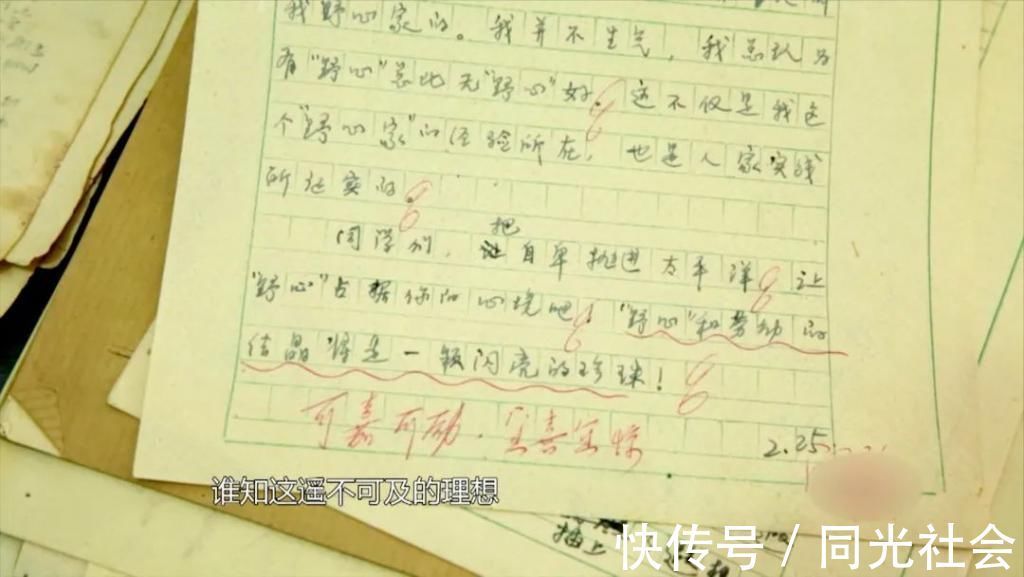 我野心家的。我并不生气，我总认为
有“野心”总比无“野心”好。这不仅是我这
个“野心家”的经验所在，也是人家实践
所证实的。
同学们，把自卑抛进太平洋，让
“野心”占据你的心境吧！“野心”和劳动的
结晶将是一颗闪亮的珍珠！
可嘉可励、
2.25
谁知这遥不可及的理想
插上
快传号 / 同光社会